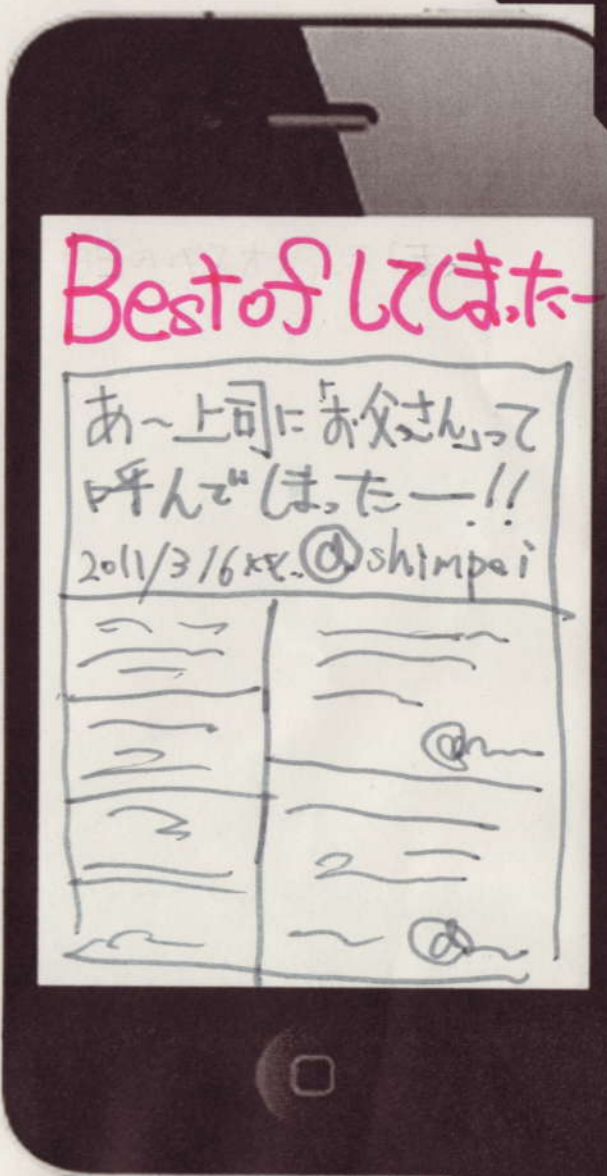 Best of してしまったー
あ〜上司に「お父さん」って
呼んでしまったー!!
2011/3/6 @shimpei